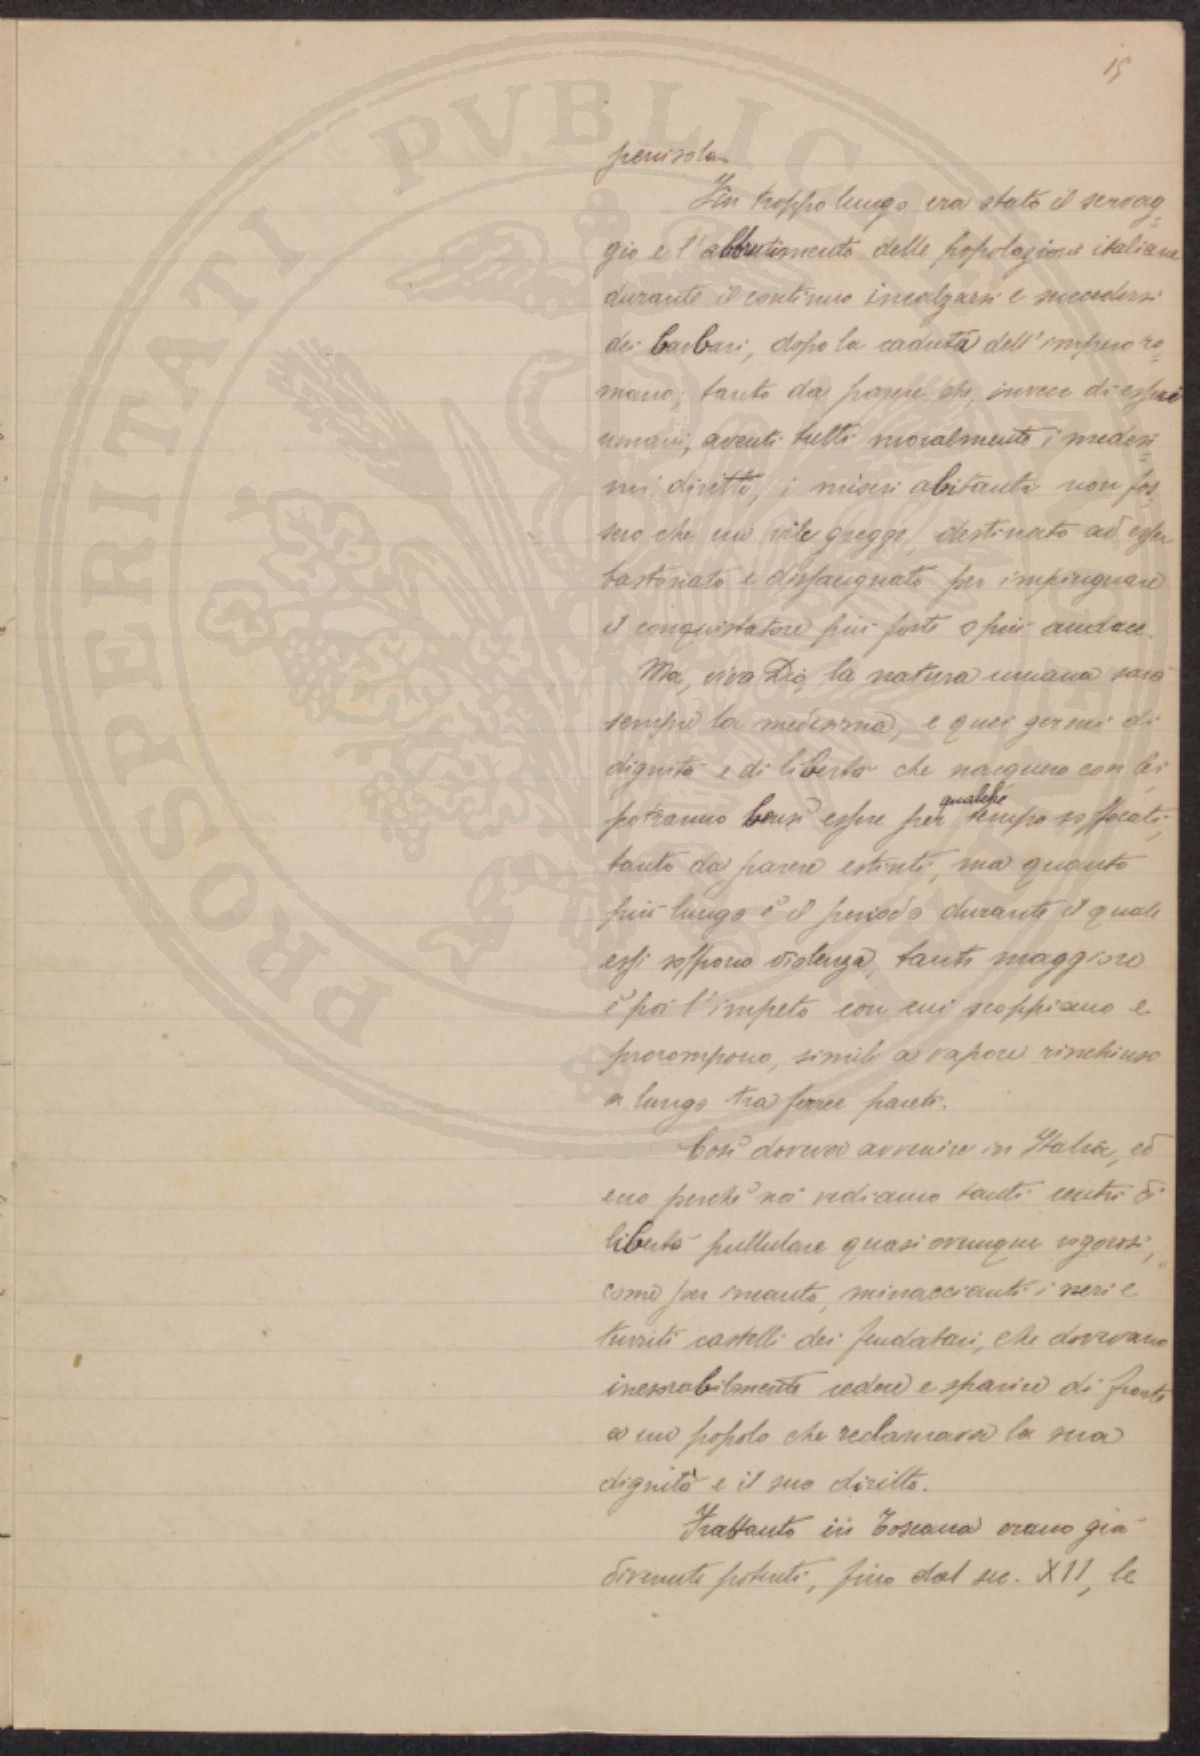 15
penisola.
Fin troppo lungo era stato il servag=
gio e l'abbrutimento delle popolazioni italiane
durante il continuo incalzarsi e succedersi
dei barbari, dopo la caduta dell'impero ro=
mano; tanto da parere che, invece di esseri
umani, aventi tutti moralmente i medesi=
mi diritti, i miseri abitanti non fos=
sero che un vile gregge, destinato ad esser
bastonato e dissanguato per impinguare
il conquistatore più forte o più audace.
Ma, viva Dio, la natura umana sarà
sempre la medesima, e quei germi di
dignità e di libertà che nacquero con lei
potranno bensì essere per qualche tempo soffocati,
tanto da parere estinti, ma quanto
più lungo è il periodo durante il quale
essi soffrono violenza, tanto maggiore
è poi l'impeto con cui scoppiano e
prorompono, simili a vapore rinchiuso
a lungo tra ferree pareti.
Così doveva avvenire in Italia, ed
ecco perchè noi vediamo tanti centri di
libertà pullulare quasi ovunque vigorosi,
come per incanto, minaccianti i neri e
turriti castelli dei feudatari, che dovevano
inesorabilmente cedere e sparire di fronte
a un popolo che reclamava la sua
dignità e il suo diritto.
Frattanto in Toscana erano già
divenute potenti, fino dal sec. XII, le
PROSPERITATI PVBLICAE